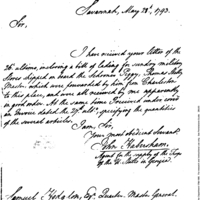 Savannah, May 28th, 1793.
Sir,
I have received your letter of the
26th ultimo, inclosing a bill of lading for sundry military
Stores shipped on board the Schooner Peggy, Thomas
Master, which were forwarded by him from Charleston
to this place, and were all received by me apparently
in good order. At the same time I received under cover
an Invoice dated the 29th, specifying the quantities
of the several articles.
I am, Sir,
Your most obedient Servant
John Habersham,
Agent for the supplying of the Troops
of the U. States in Georgia.
Samuel Hodgdon, Esq. Quarter Master General.